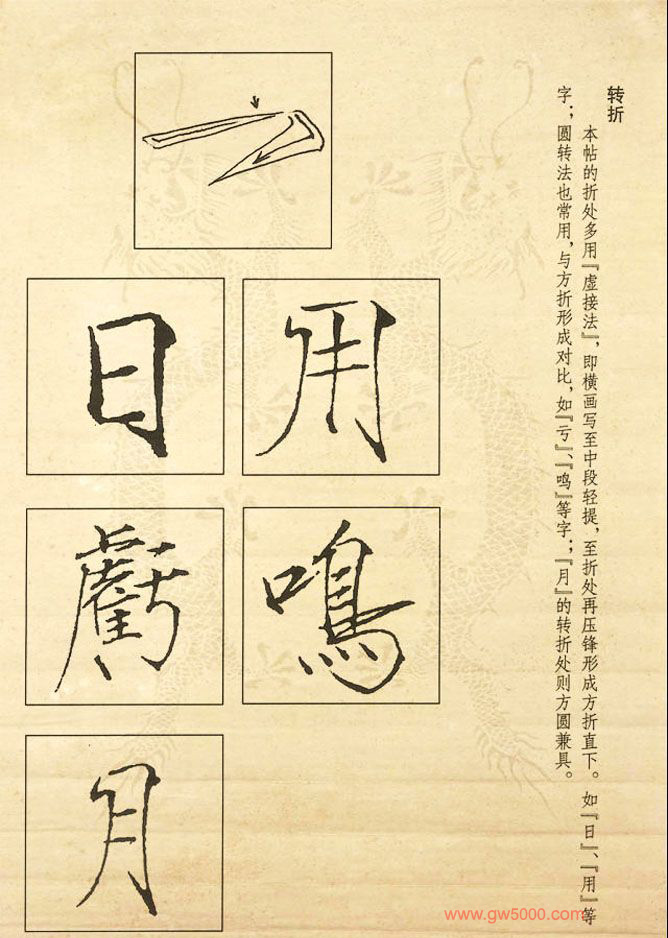 转折
本帖的折处多用『虚接法』，即横画写至中段轻提，至折处再压锋形成方折直下。如『日』、『用』等
字；圆转法也常用，与方折形成对比，如『亏』、『鸣』等字；『月』的转折处则方圆兼具。
用
日
鳴
虧
月
www.gw5000.com